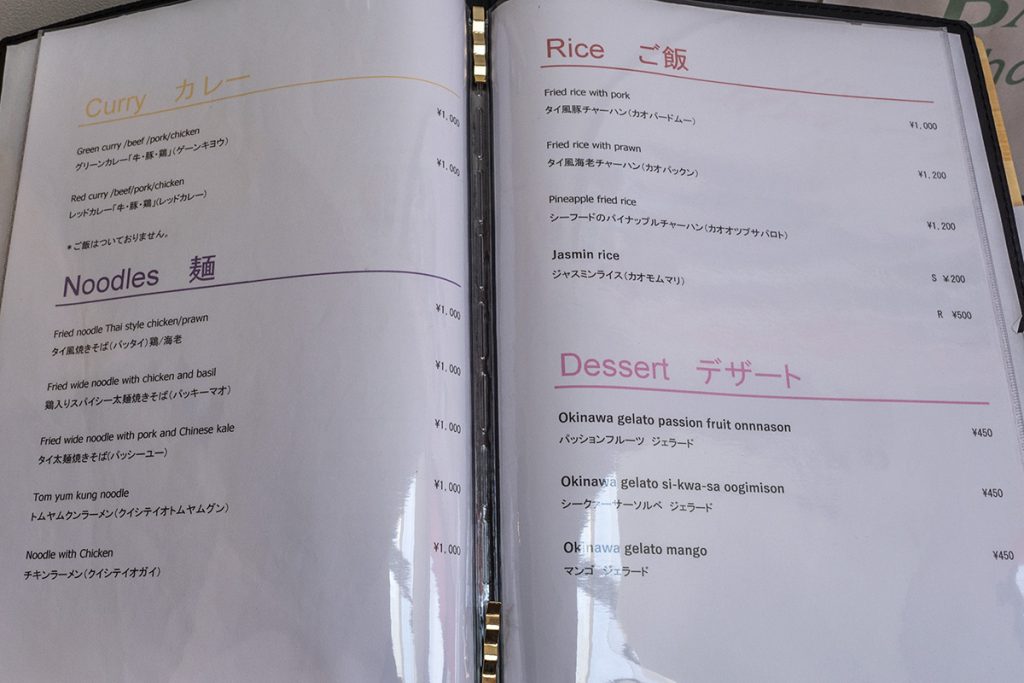 Curry カレー
Green curry /beef /pork/chicken ¥1,000
グリーンカレー「牛・豚・鶏」(ゲーンキヨウ)
Red curry /beef/pork/chicken ¥1,000
レッドカレー「牛・豚・鶏」(レッドカレー)
*ご飯はついておりません。
Noodles 麺
Fried noodle Thai style chicken/prawn ¥1,000
タイ風焼きそば(パッタイ)鶏/海老
Fried wide noodle with chicken and basil ¥1,000
鶏入りスパイシー太麺焼きそば(パッキーマオ)
Fried wide noodle with pork and Chinese kale ¥1,000
タイ太麺焼きそば(パッシーユー)
Tom yum kung noodle ¥1,000
トムヤムクンラーメン(クイシテイオトムヤムグン)
Noodle with Chicken ¥1,000
チキンラーメン(クイシテイオガイ)
Rice ご飯
Fried rice with pork
タイ風豚チャーハン(カオパードムー) ¥1,000
Fried rice with prawn
タイ風海老チャーハン(カオパックン) ¥1,200
Pineapple fried rice
シーフードのパイナップルチャーハン(カオオツプサパロト) ¥1,200
Jasmin rice
ジャスミンライス(カオモムマリ) S ¥200
R ¥500
Dessert デザート
Okinawa gelato passion fruit onnnason ¥450
パッションフルーツ ジェラード
Okinawa gelato si-kwa-sa oogimison ¥450
シークァーサーソルベ ジェラード
Okinawa gelato mango ¥450
マンゴ ジェラード